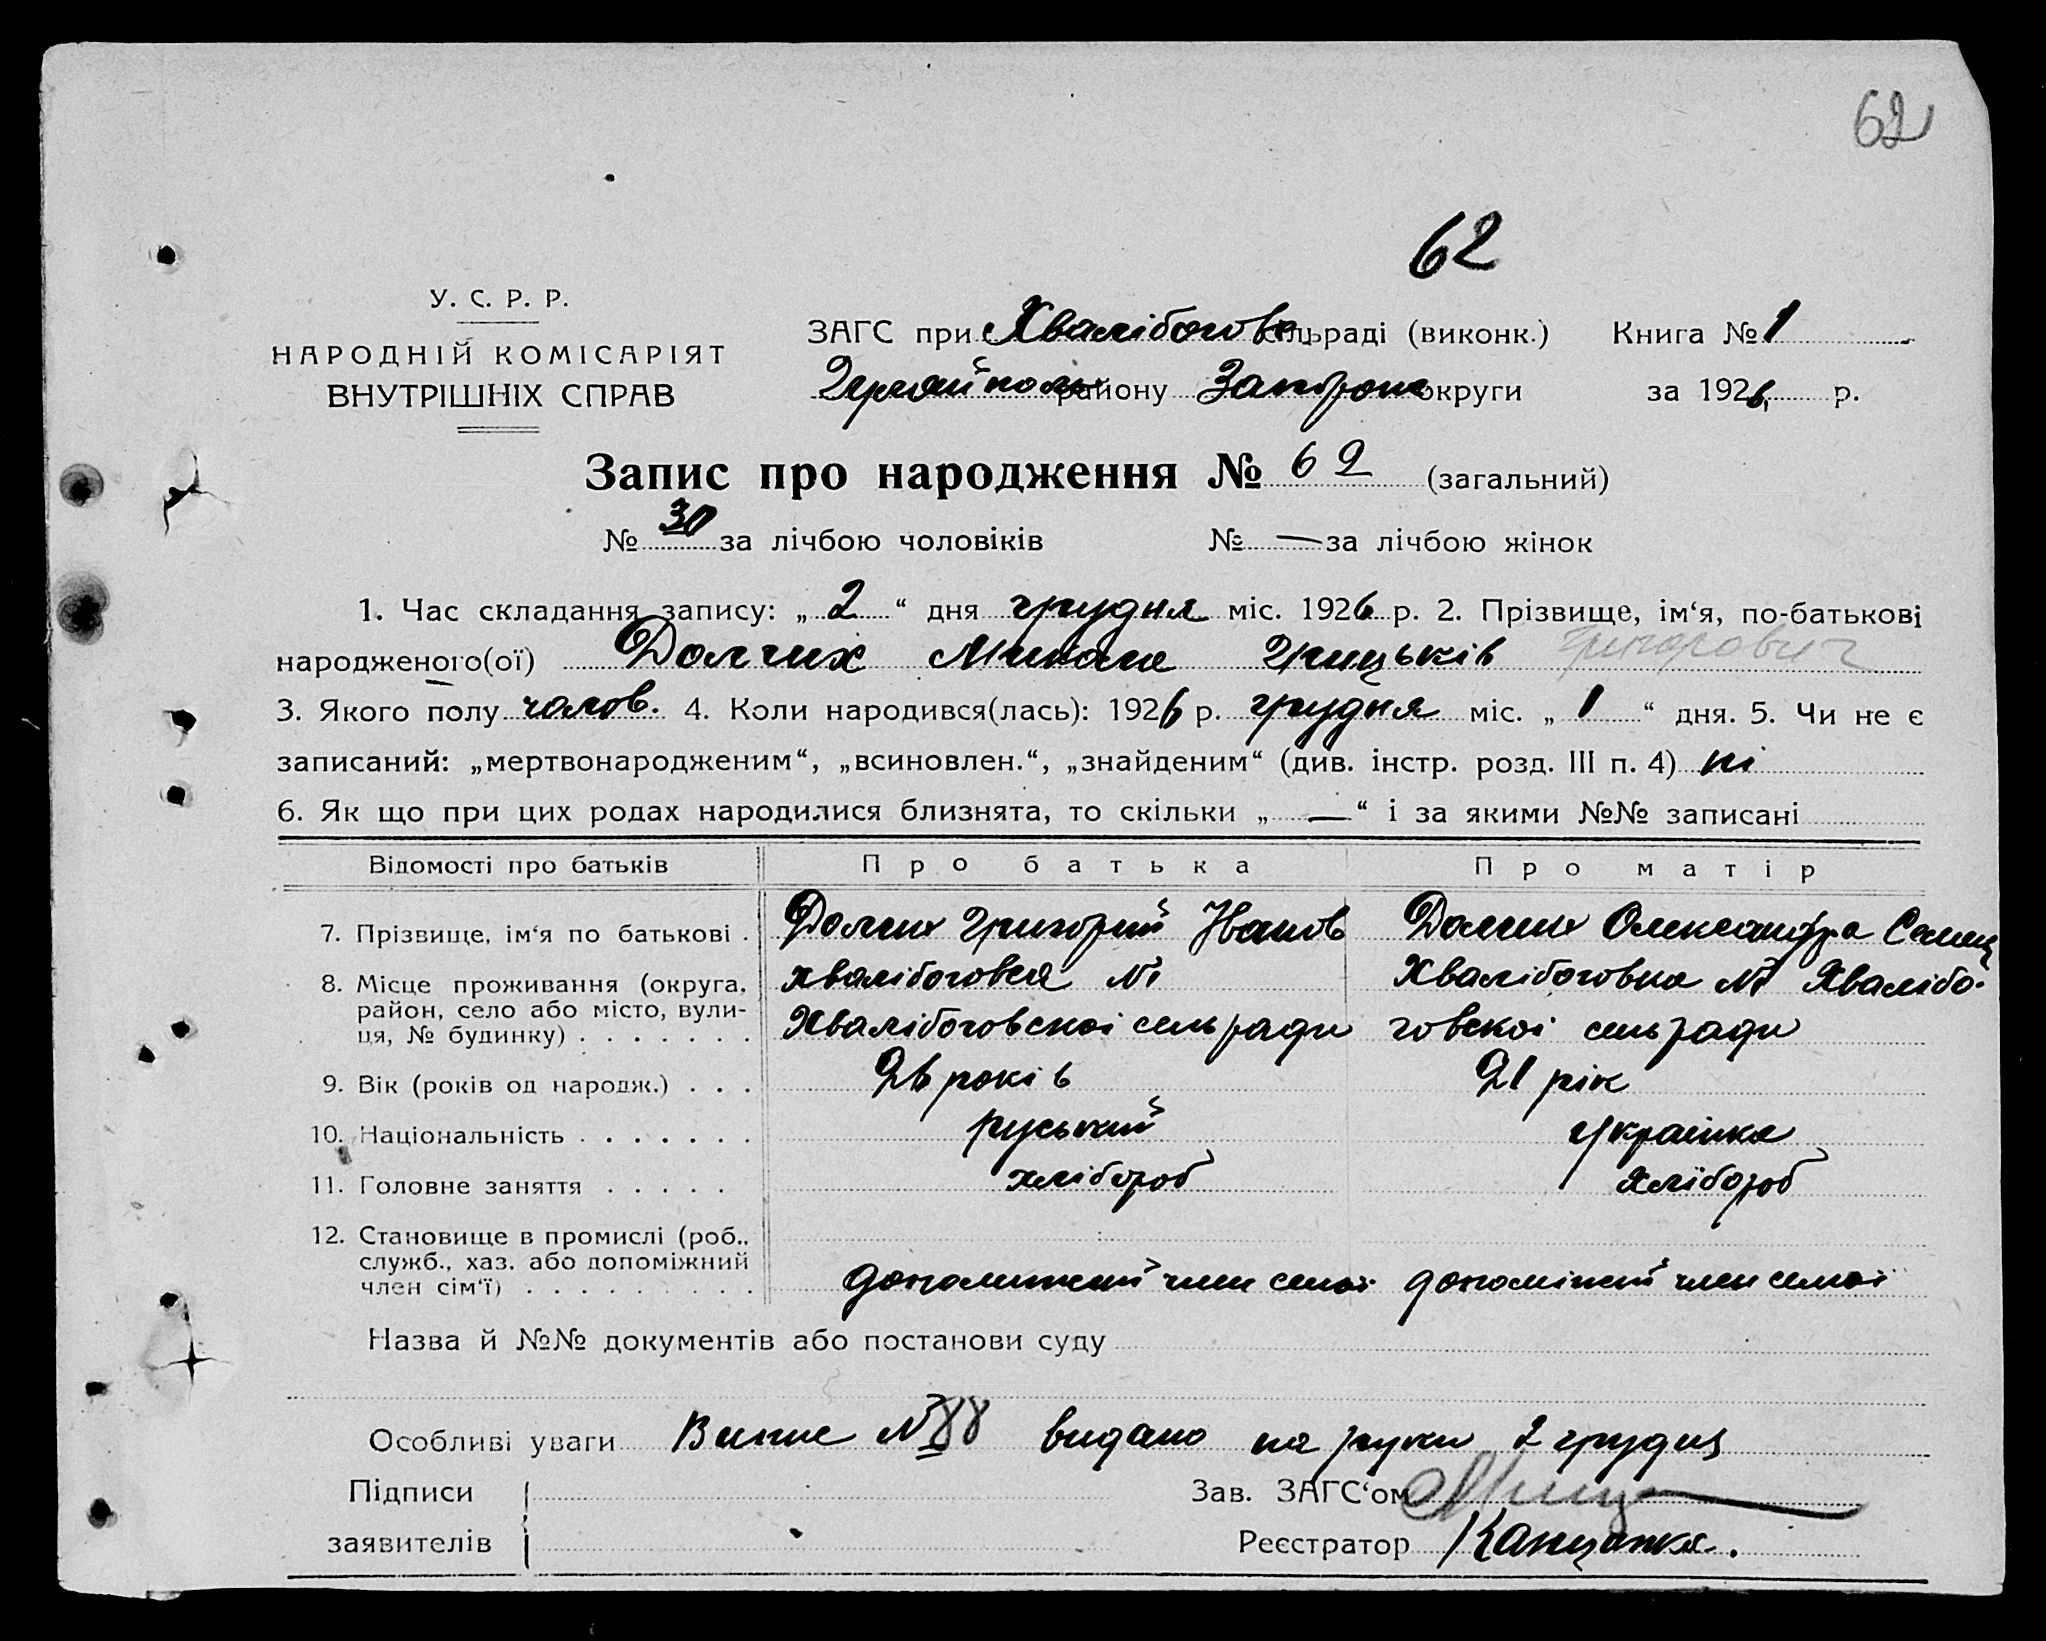 62
62
У. С. Р. Р.
НАРОДНІЙ КОМІСАРІЯТ
ВНУТРІШНІХ СПРАВ
ЗАГС при Хвалібогов сільраді (виконк.) Книга № 1
району Запорож округи за 1926 р.
Запис про народження № 62 (загальний)
№ 30 за лічбою чоловіків № — за лічбою жінок
1. Час складання запису: „ 2 “ дня грудня міс. 1926 р. 2. Прізвище, ім‘я, по-батькові
народженого(ої) Долгих Микола Грицьків Григорович
3. Якого полу чолов. 4. Коли народився(лась): 1926 р. грудня міс. „ 1 “ дня. 5. Чи не є
записаний: „мертвонародженим“, „всиновлен.“, „знайденим“ (див. інстр. розд. III п. 4) ні
6. Як що при цих родах народилися близнята, то скільки „ — “ і за якими №№ записані
Відомості про батьків Про батька Про матір
7. Прізвище, ім‘я по батькові . Долгих Григорий Іванов Долгих Олександра
8. Місце проживання (округа, район, село або місто, вулиця, № будинку) . . . . . . .
Хвалібоговка №1 Хвалібоговка №1 Хвалібо-
Хвалібоговскоі сельради говскоі сельради
9. Вік (років од народж.) . . . 26 років 21 рік
10. Національність . . . . . . . руський украінка
11. Головне заняття . . . . . хлібороб хлібороб
12. Становище в промислі (роб., служб., хаз. або допоміжний член сім‘ї) . . . . . . . . .
допоміжний член семьі допоміжний член семьі
Назва й №№ документів або постанови суду
Особливі уваги Випис № 88 видано на руки 2 грудня
Підписи Зав. ЗАГС‘ом
заявителів Реєстратор